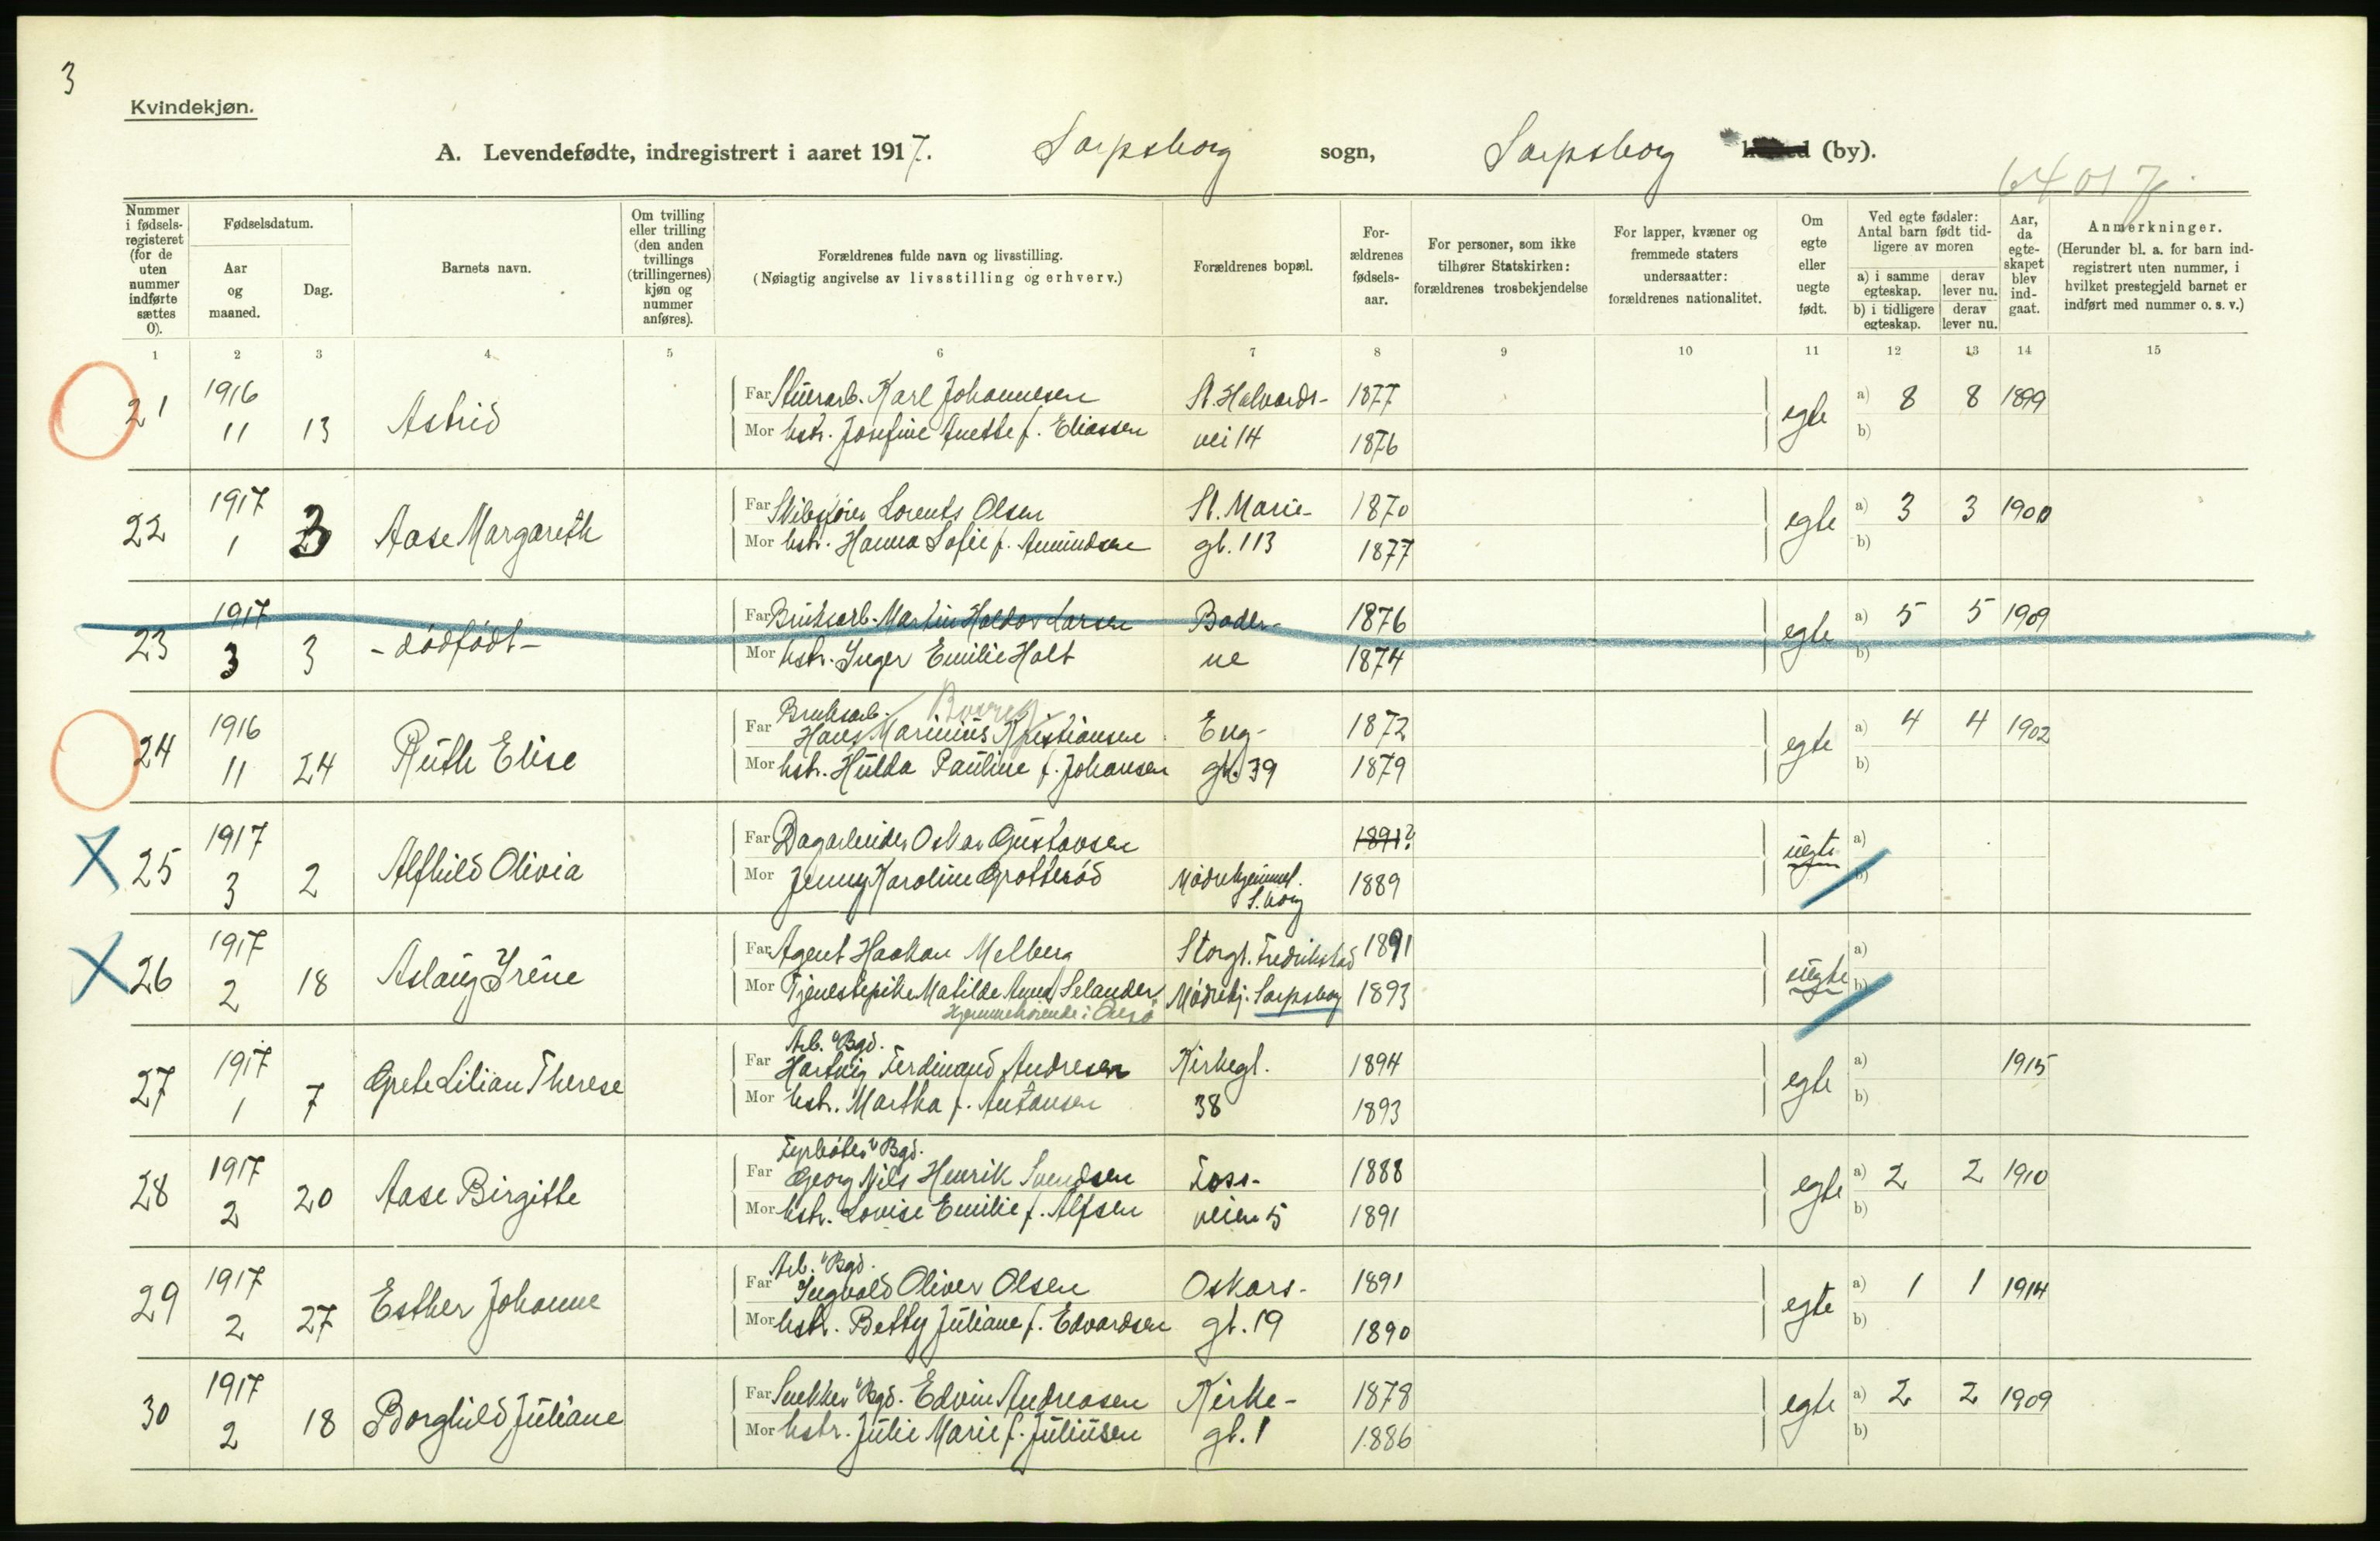 3
Kvindekjøn.
A. Levendefødte, indregistrert i aaret 1917. Sarpsborg sogn, Sarpsborg (by).
64017
Nummer i fødsels-registeret (for de uten nummer indførte sættes 0).
Fødselsdatum.
Aar og maaned.
Dag.
Barnets navn.
Om tvilling eller trilling (den anden tvillings (trillingernes) kjøn og nummer anføres).
Forældrenes fulde navn og livsstilling.
(Nøiagtig angivelse av livsstilling og erhverv.)
Forældrenes bopæl.
For-ældrenes fødsels-aar.
For personer, som ikke tilhører Statskirken: forældrenes trosbekjendelse
For lapper, kvæner og fremmede staters undersaatter: forældrenes nationalitet.
Om egte eller uegte født.
Ved egte fødsler: Antal barn født tid-ligere av moren
a) i samme egteskap. derav lever nu.
b) i tidligere egteskap. derav lever nu.
Aar, da egte-skapet blev ind-gaat.
Anmerkninger.
(Herunder bl. a. for barn ind-registrert uten nummer, i hvilket prestegjeld barnet er indført med nummer o. s. v.)
1 2 3 4 5 6 7 8 9 10 11 12 13 14 15
21 1916 11 13 Astrid
Far Stuerarb. Karl Johannesen St. Halvards- 1877 egte a) 8 8 1899
Mor hstr. Josefine Anette f. Eliassen vei 14 1876 b)
22 1917 1 3 Aase Margareth
Far Lorents Olsen St. Marie- 1870 egte a) 3 3 1900
Mor hstr. Hanna Sofie f. Amundsen gt. 113 1877 b)
23 1917 3 3 - dødfødt -
Far Bruksarb. Martin Haldor Larsen Boder- 1876 egte a) 5 5 1909
Mor hstr. Inger Emilie Holt ne 1874 b)
24 1916 11 24 Ruth Elise
Bruksarb. Borreg
Far Hans Marinius Kristiansen Eng- 1872 egte a) 4 4 1902
Mor hstr. Hulda Pauline f. Johansen gt. 39 1879 b)
25 1917 3 2 Alfhild Olivia
Far Dagarbeider Oskar Gustavsen 1891? uegte a)
Mor Jenny Karoline Grotterød Mødrehjemmet. S.borg 1889 b)
26 1917 2 18 Aslaug Irene
Far Agent Haakon Melberg Storgt. Fredrikstad 1891 uegte a)
Mor Tjenestepike Matilde Anna Selander Mødrehj. Sarpsborg 1893 b)
Hjemmehørende i Onsø
27 1917 1 7 Grete Lilian Therese
Arb. v Bgd.
Far Hartvig Ferdinand Andresen Kirkegt. 1894 egte a) 1915
Mor hstr. Martha f. Antonsen 38 1893 b)
28 1917 2 20 Aase Birgitte
Fyrbøter v Bgd.
Far Georg Nils Henrik Svendsen Foss- 1888 egte a) 2 2 1910
Mor hstr. Lovise Emilie f. Alfsen veien 5 1891 b)
29 1917 2 27 Esther Johanne
Arb. v Bgd.
Far Ingvald Oliver Olsen Oskars- 1891 egte a) 1 1 1914
Mor hstr. Betty Juliane f. Edvardsen gt. 19 1890 b)
30 1917 2 18 Borghild Juliane
Far Snekker v Bgd. Edvin Andreasen Kirke- 1878 egte a) 2 2 1909
Mor hstr. Julie Marie f. Juliusen gt. 1 1886 b)